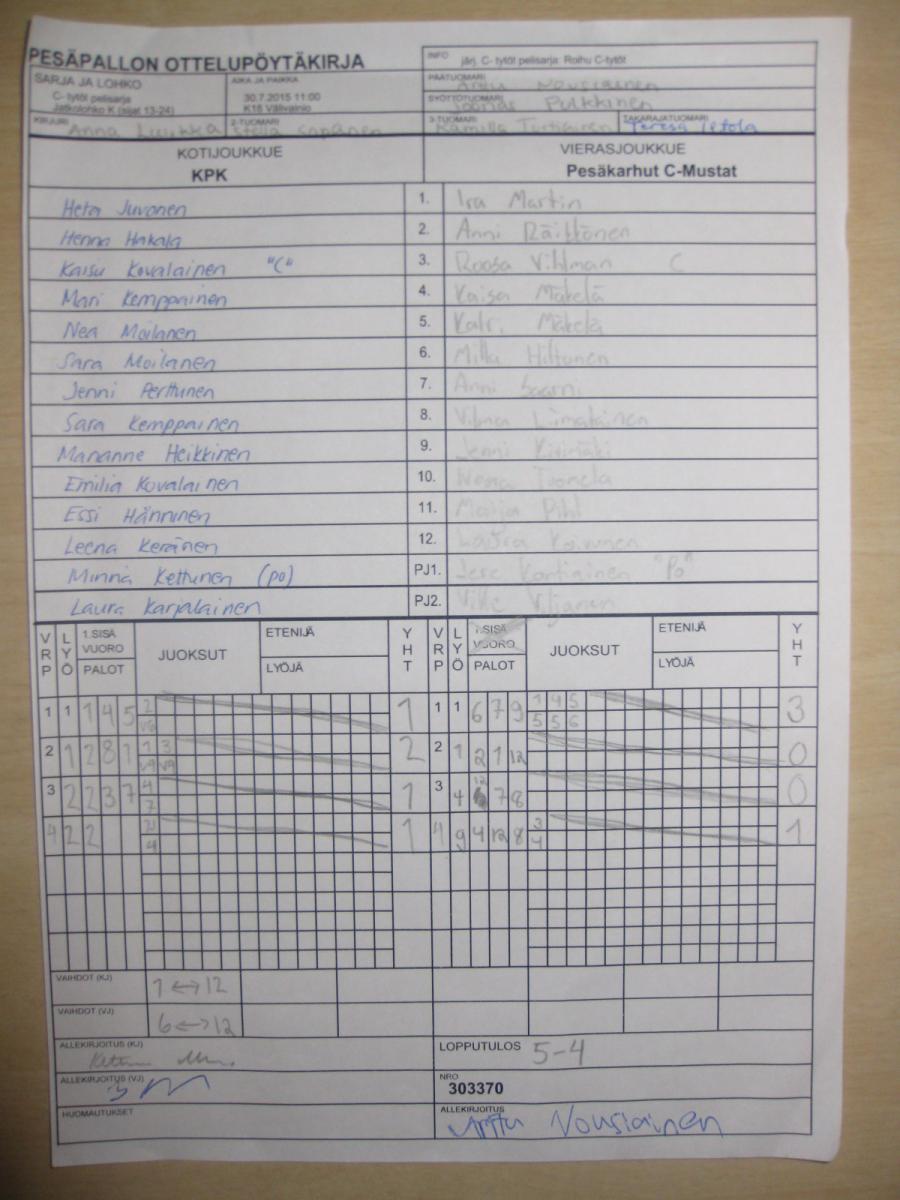 PESÄPALLON OTTELUPÖYTÄKIRJA
INFO järj. C- tytöt pelisarja: Roihu C-tytöt
SARJA JA LOHKO
C- tytöt pelisarja
Jatkolohko K (sijat 13-24)
AIKA JA PAIKKA
30.7.2015 11:00
K18 Välivainio
PÄÄTUOMARI Arttu Nousiainen
SYÖTTÖTUOMARI Joonas Pulkkinen
KIRJURI Anna
2-TUOMARI Stella
3-TUOMARI Kamilla Turtiainen
TAKARAJATUOMARI Teresa Ietola
KOTIJOUKKUE
KPK
VIERASJOUKKUE
Pesäkarhut C-Mustat
Heta Juvonen 1. Ira Martin
Henna Hakala 2. Anni Räikkönen
Kaisu Kovalainen "C" 3. Roosa Vihlman C
Mari Kemppainen 4. Kaisa Mäkelä
Nea Moilanen 5. Katri Mäkelä
Sara Moilanen 6. Milla Hiltunen
Jenni Perttunen 7. Anni Saarni
Sara Kemppainen 8. Vilma Liimatainen
Marianne Heikkinen 9. Jenni Kivimäki
Emilia Kovalainen 10. Noora Tuomela
Essi Hänninen 11. Marja Pihl
Leena Keränen 12. Laura Koivunen
Minna Kettunen (po) PJ1. Jere Kortiainen "Po"
Laura Karjalainen PJ2. Ville Viljanen
VRP LYÖ 1.SISÄ VUORO PALOT JUOKSUT ETENIJÄ LYÖJÄ YHT VRP LYÖ 1.SISÄ VUORO PALOT JUOKSUT ETENIJÄ LYÖJÄ YHT
1 1 1 4 5 2 1 1 1 6 7 9 1 4 5 3
V9 5 5 6
2 1 2 8 1 1 3 2 2 1 2 1 12 0
V9 V9
3 2 2 3 7 4 1 3 4 12 7 8 0
7
4 2 2 1 4 9 4 12 8 3 1
4 4
VAIHDOT (KJ) 1 ↔ 12
VAIHDOT (VJ) 6 ↔ 12
ALLEKIRJOITUS (KJ)
LOPPUTULOS 5-4
ALLEKIRJOITUS (VJ)
NRO
303370
HUOMAUTUKSET
ALLEKIRJOITUS
Arttu Nousiainen